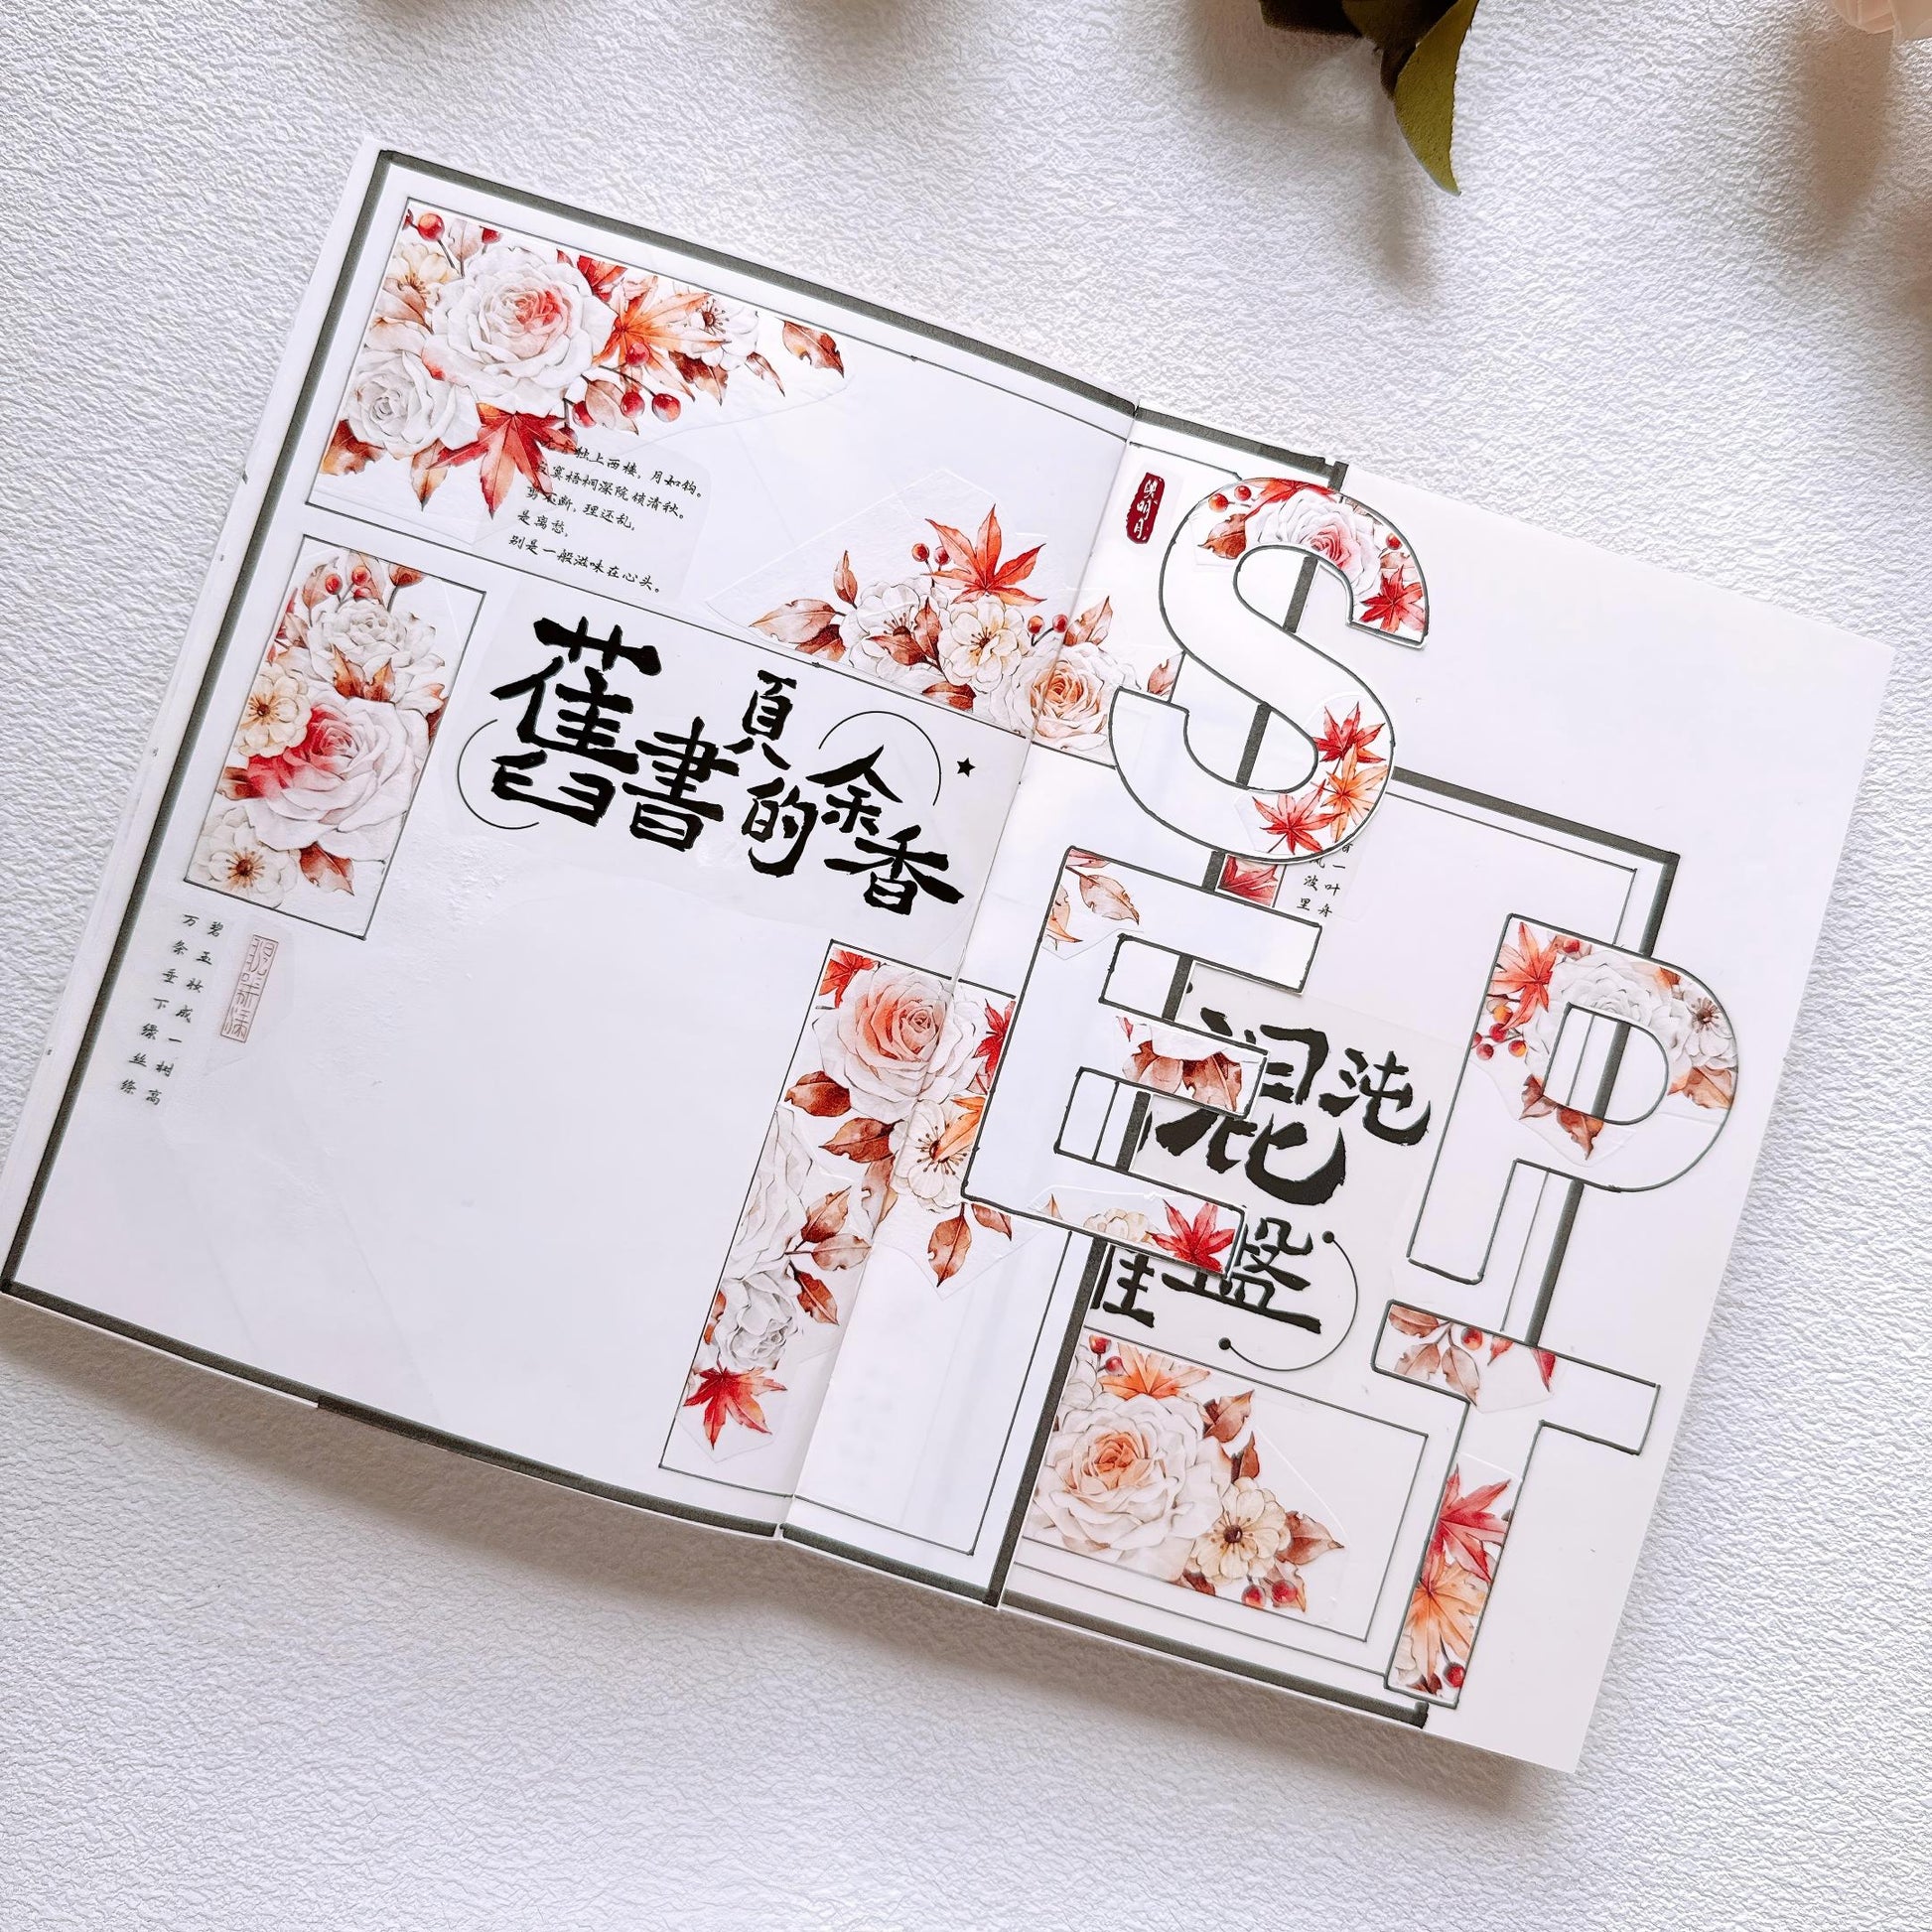 独上西楼，月如钩。
寂寞梧桐深院锁清秋。
剪不断，理还乱，
是离愁，
别是一般滋味在心头。
舊書頁的余香
碧玉妆成一树高
万条垂下绿丝绦
SEPT
一叶舟
波里
混沌
盤